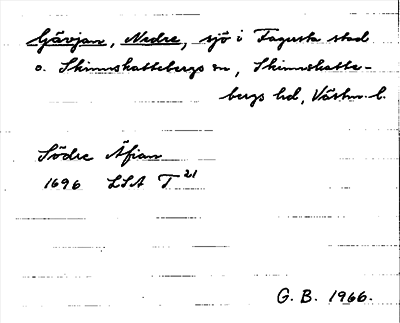 Gävjan, Nedre, sjö i Fagersta stad
o. Skinnskattebergs sn, Skinnskatte-
bergs hd, Västm. l.
Södre Äfian
1696 LSA T 21
G. B. 1966.